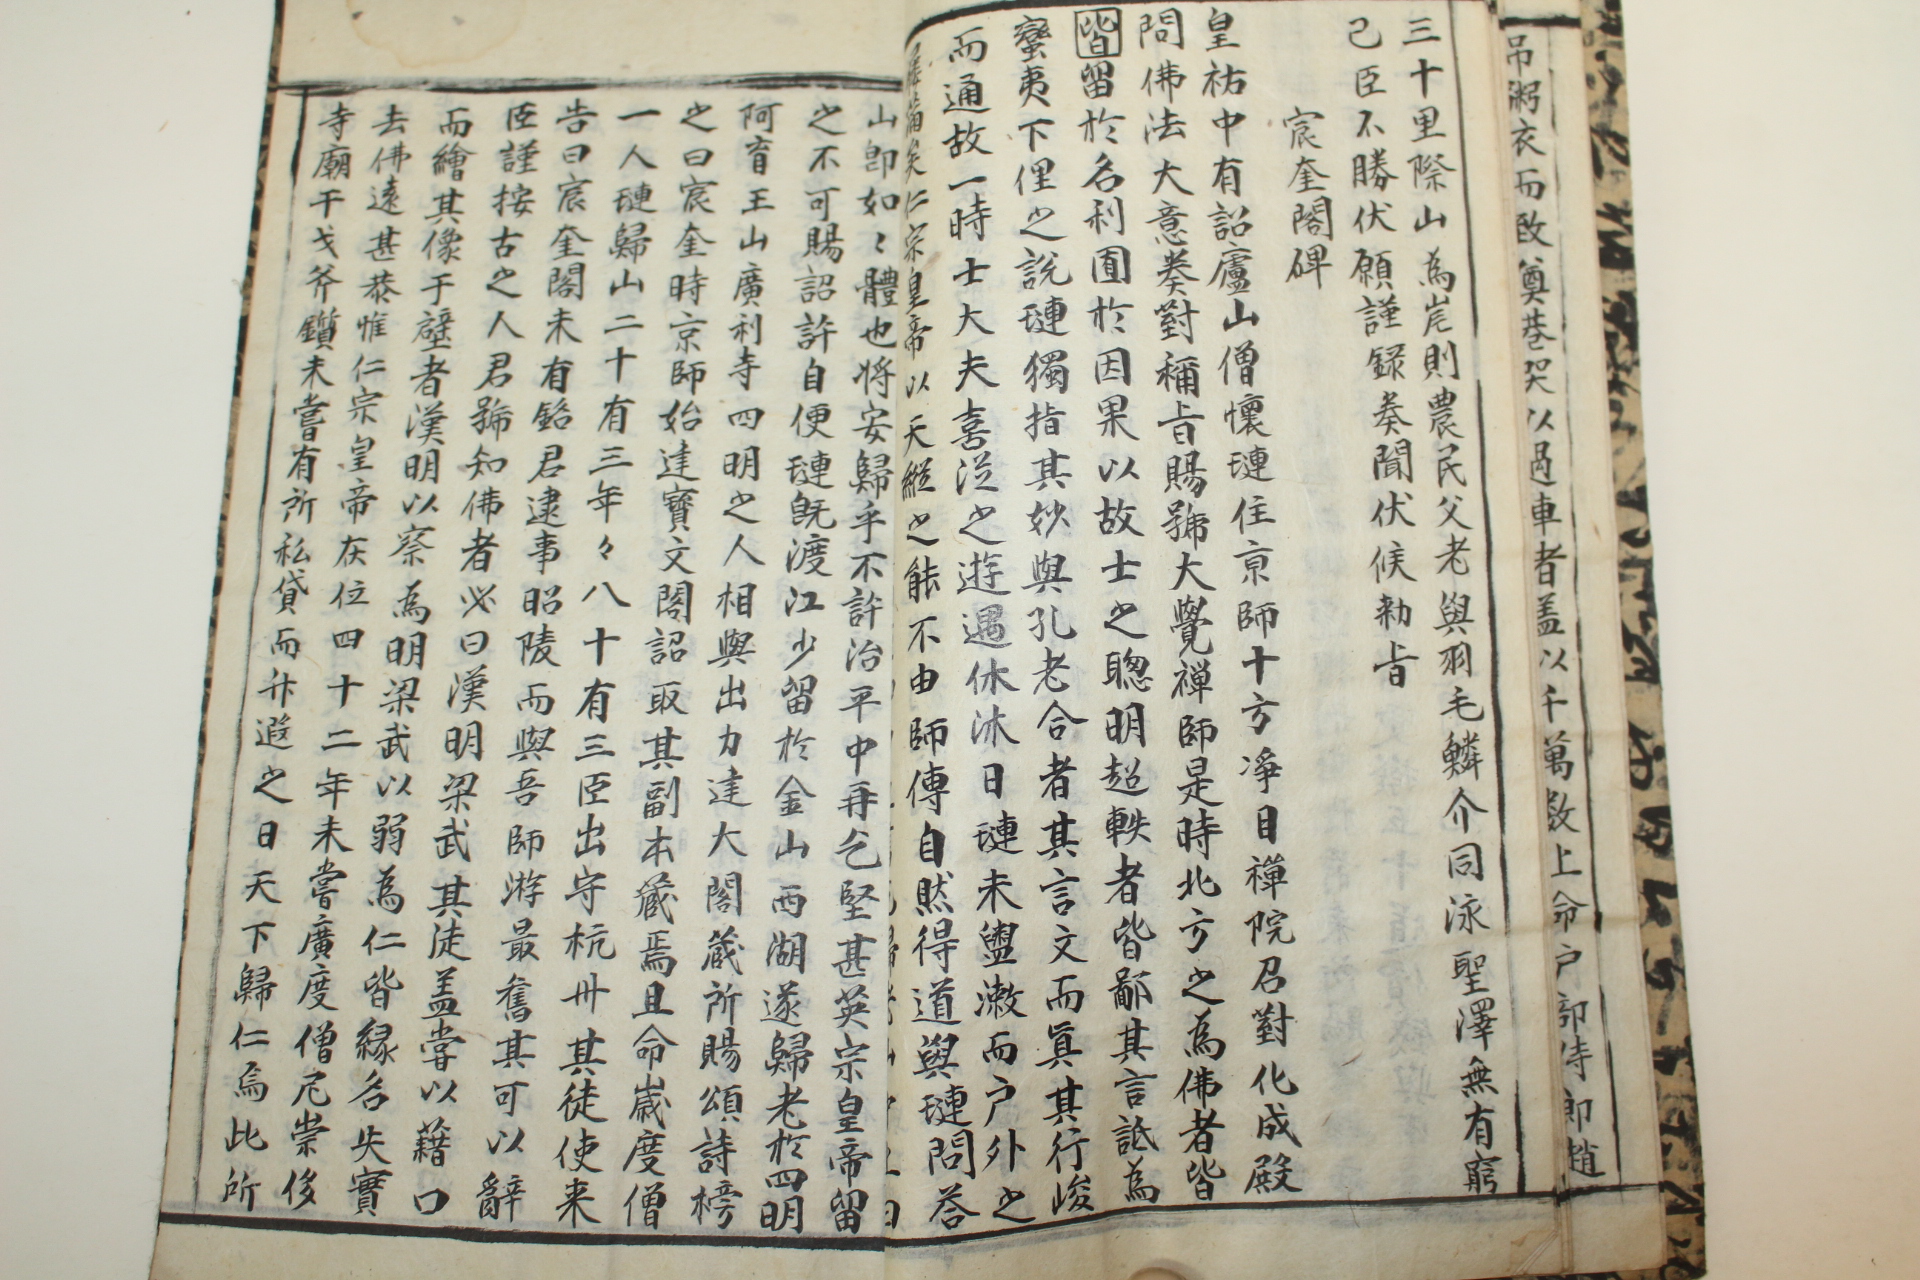 吊粥衣而致奠巷哭以過車者盖以千萬数上命户部侍郎趙
三十里際山為㟁則農民父老與羽毛鱗介同泳聖澤無有窮
已臣不勝伏願謹録奏聞伏候勑旨
宸奎閣碑
皇祐中有詔廬山僧懷璉住京師十方凈因禪院召對化成殿
問佛法大意奏對稱旨賜號大覺禪師是時北方之為佛者皆
皆留於名利囿於因果以故士之聰明超軼者皆鄙其言詆為
蠻夷下俚之說璉獨指其妙與孔老合者其言文而眞其行峻
而通故一時士大夫喜從之遊遇休沐日璉未盥漱而户外之
矣仁宗皇帝以天縱之能不由師傳自然得道與璉問荅
山卽如々體也将安歸乎不許治平中再乞堅甚英宗皇帝留
之不可賜詔許自便璉既渡江少留於金山西湖遂歸老於四明
阿育王山廣利寺四明之人相與出力建大閣藏所賜頌詩榜
之曰宸奎時京師始建寳文閣詔取其副本藏焉且命歳度僧
一人璉歸山二十有三年々八十有三臣出守杭州其徒使来
告曰宸奎閣未有銘君逮事昭陵而與吾師游最舊其可以辭
臣謹按古之人君號知佛者必曰漢明梁武其徒盖嘗以藉口
而繪其像于壁者漢明以察為明梁武以弱為仁皆縁名失實
去佛遠甚恭惟仁宗皇帝在位四十二年未嘗廣度僧尼崇侈
寺廟干戈斧鑕未嘗有所私貸而升遐之日天下歸仁焉此所